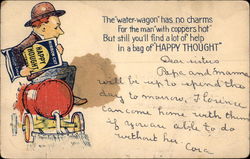 The "water-wagon" has no charms
For the man "with coppers hot"
But still you'll find a lot of help
in a bag of "HAPPY THOUGHT"
HAPPY
THOUGHT
Dear
Papa and mama
will be up to spend the
day to morrow, Florence
can come home with them
if you are able to do
without her Cora